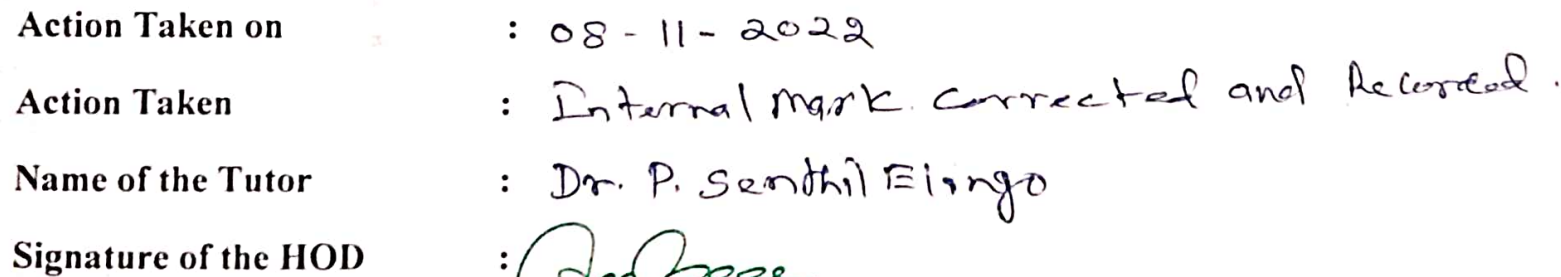 Action Taken on : 08-11-2022
Action Taken : Internal Mark. Corrected and Recorded.
Name of the Tutor : Dr. P. Senthil Elango
Signature of the HOD :